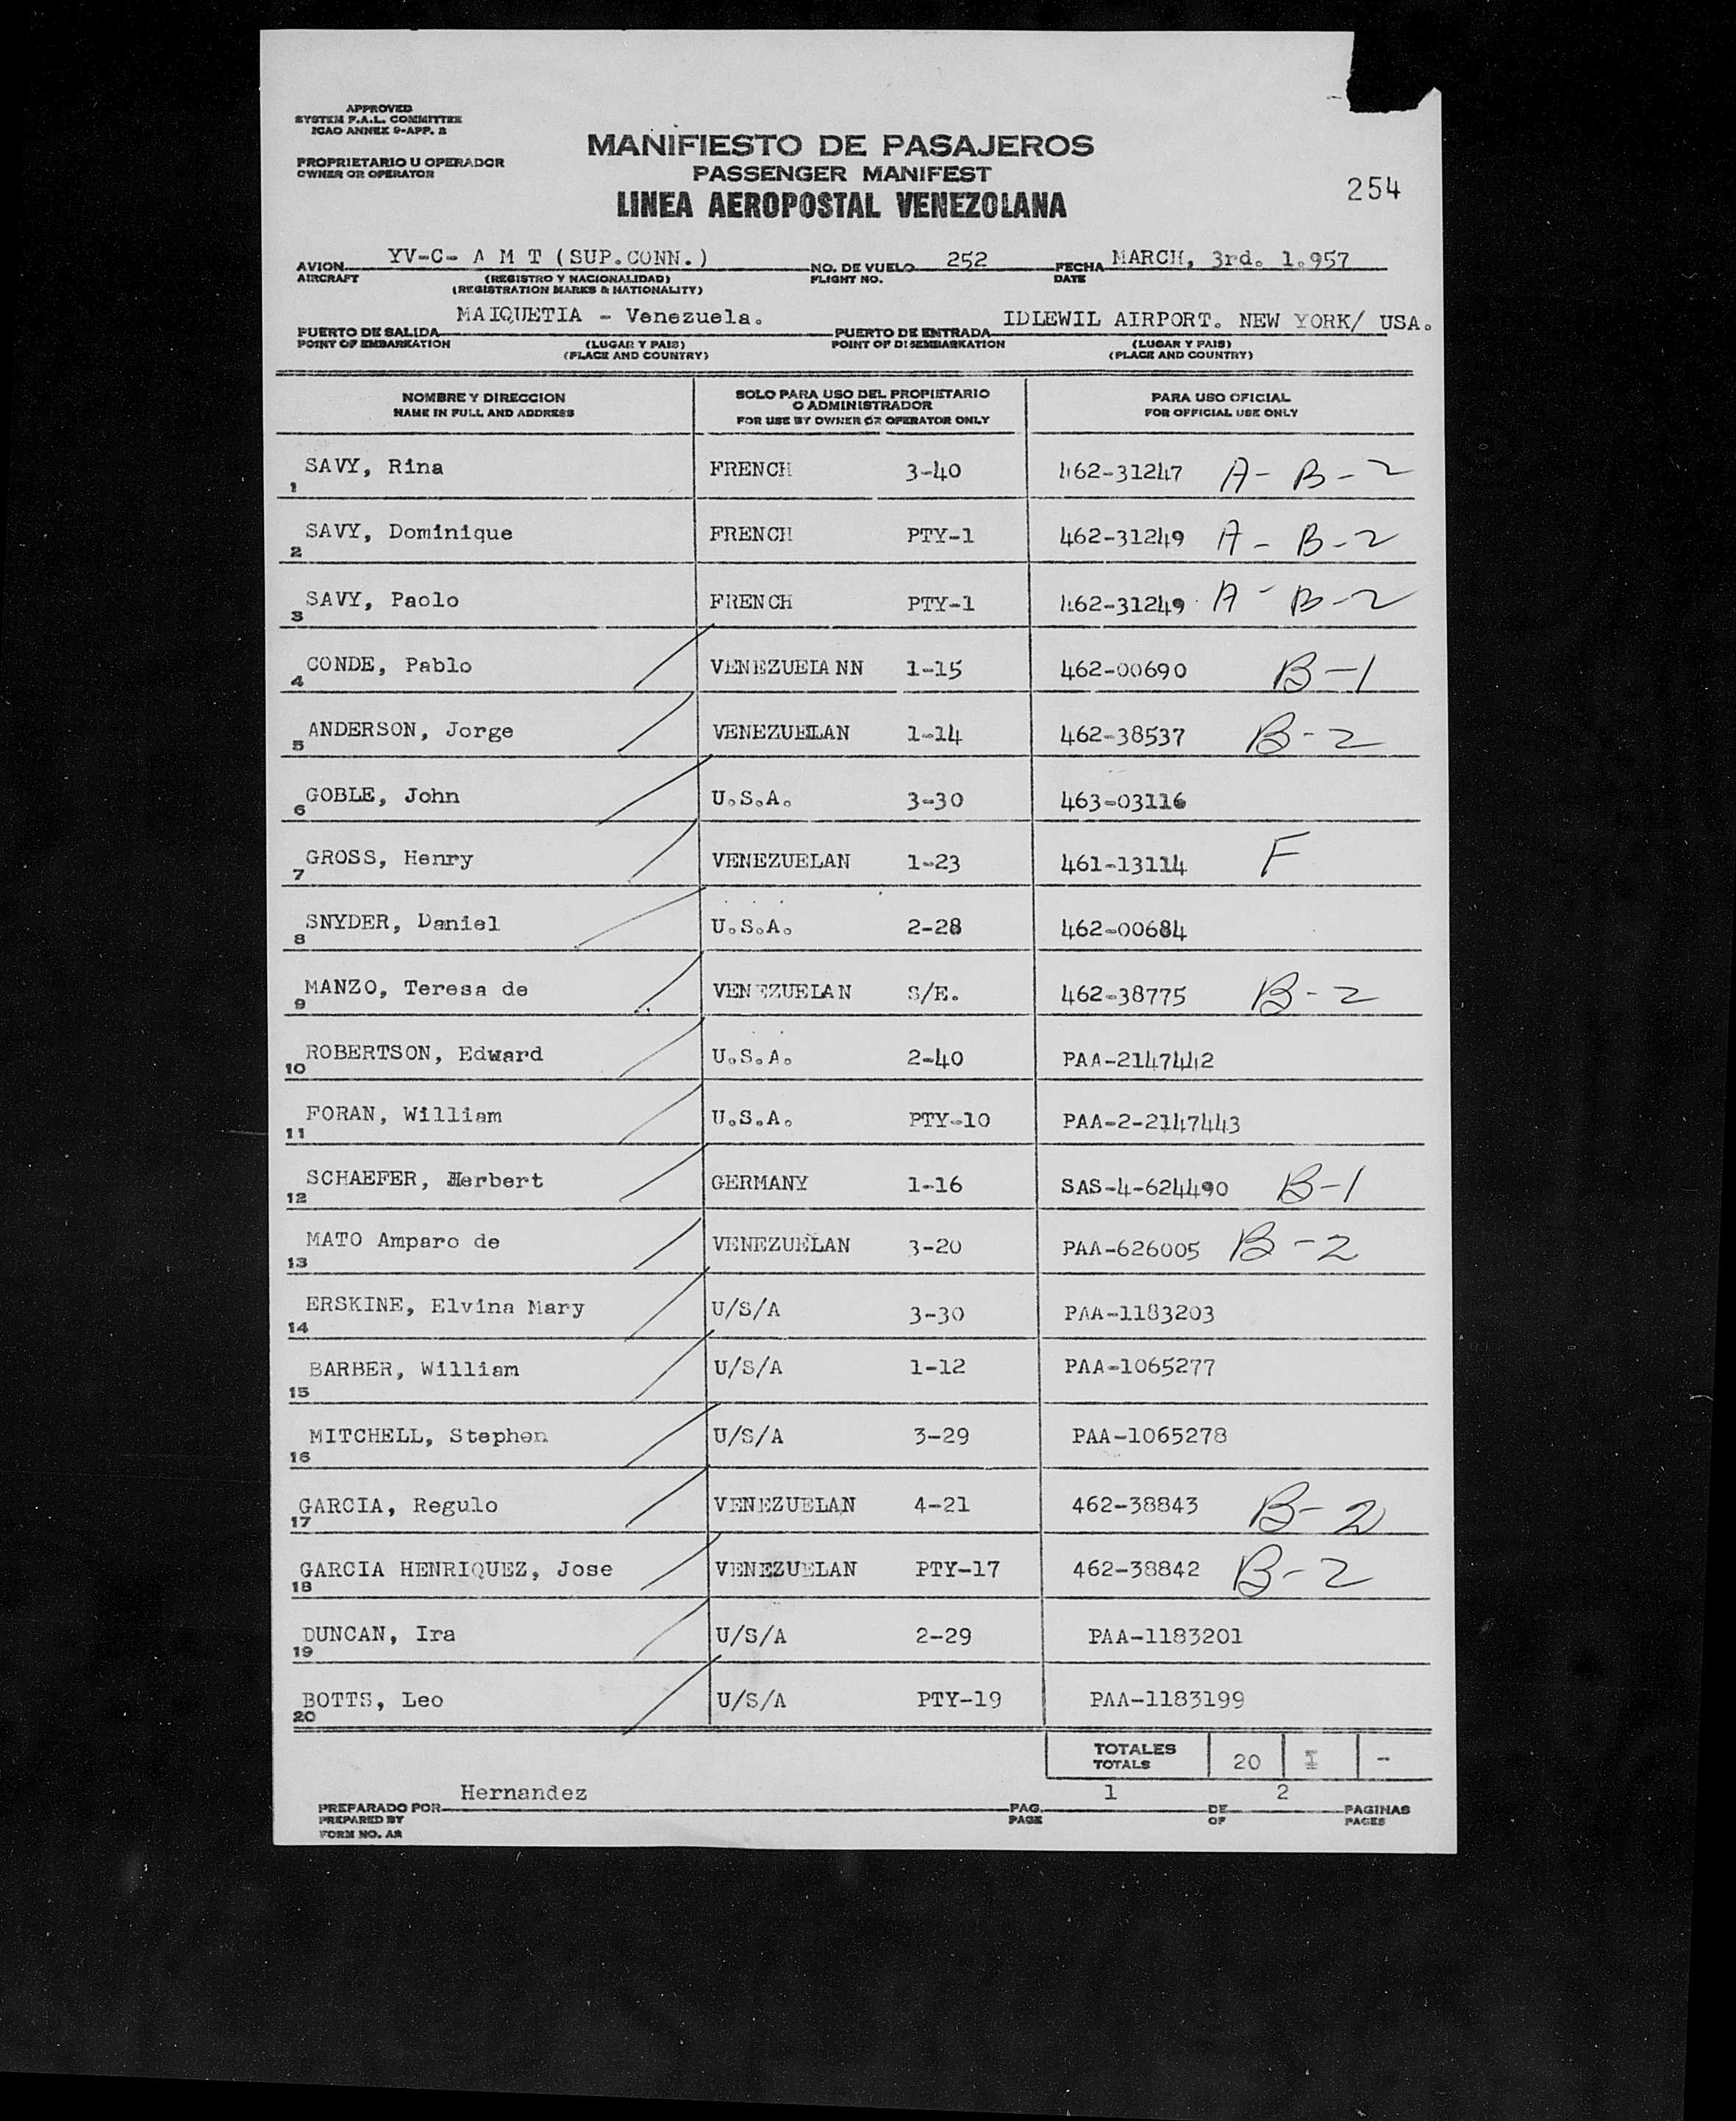 APPROVED
SYSTEM F.A.L. COMMITTEE
ICAO ANNEX 9-APP. 2
PROPRIETARIO U OPERADOR
OWNER OR OPERATOR
MANIFIESTO DE PASAJEROS
PASSENGER MANIFEST
LINEA AEROPOSTAL VENEZOLANA
254
AVION YV-C- A M T (SUP.CONN.) NO. DE VUELO 252 FECHA MARCH, 3rd. 1.957
AIRCRAFT (REGISTRO Y NACIONALIDAD) FLIGHT NO. DATE
(REGISTRATION MARKS & NATIONALITY)
PUERTO DE SALIDA MAIQUETIA - Venezuela. PUERTO DE ENTRADA IDLEWIL AIRPORT. NEW YORK/ USA.
POINT OF EMBARKATION (LUGAR Y PAIS) POINT OF DISEMBARKATION (LUGAR Y PAIS)
(PLACE AND COUNTRY) (PLACE AND COUNTRY)
NOMBRE Y DIRECCION SOLO PARA USO DEL PROPIETARIO O ADMINISTRADOR PARA USO OFICIAL
NAME IN FULL AND ADDRESS FOR USE BY OWNER OR OPERATOR ONLY FOR OFFICIAL USE ONLY
1 SAVY, Rina FRENCH 3-40 462-31247 A- B-2
2 SAVY, Dominique FRENCH PTY-1 462-31249 A- B-2
3 SAVY, Paolo FRENCH PTY-1 462-31249 A- B-2
4 CONDE, Pablo VENEZUELANN 1-15 462-00690 B-1
5 ANDERSON, Jorge VENEZUELAN 1-14 462-38537 B-2
6 GOBLE, John U.S.A. 3-30 463-03116
7 GROSS, Henry VENEZUELAN 1-23 461-13114 F
8 SNYDER, Daniel U.S.A. 2-28 462-00684
9 MANZO, Teresa de VENEZUELAN S/E. 462-38775 B-2
10 ROBERTSON, Edward U.S.A. 2-40 PAA-2147442
11 FORAN, William U.S.A. PTY-10 PAA-2-2147443
12 SCHAEFER, Herbert GERMANY 1-16 SAS-4-624490 B-1
13 MATO Amparo de VENEZUELAN 3-20 PAA-626005 B-2
14 ERSKINE, Elvina Mary U/S/A 3-30 PAA-1183203
15 BARBER, William U/S/A 1-12 PAA-1065277
16 MITCHELL, Stephen U/S/A 3-29 PAA-1065278
17 GARCIA, Regulo VENEZUELAN 4-21 462-38843 B-2
18 GARCIA HENRIQUEZ, Jose VENEZUELAN PTY-17 462-38842 B-2
19 DUNCAN, Ira U/S/A 2-29 PAA-1183201
20 BOTTS, Leo U/S/A PTY-19 PAA-1183199
TOTALES
TOTALS 20 -
PREPARADO POR Hernandez PAG. 1 DE 2 PAGINAS
PREPARED BY PAGE OF PAGES
FORM NO. AR